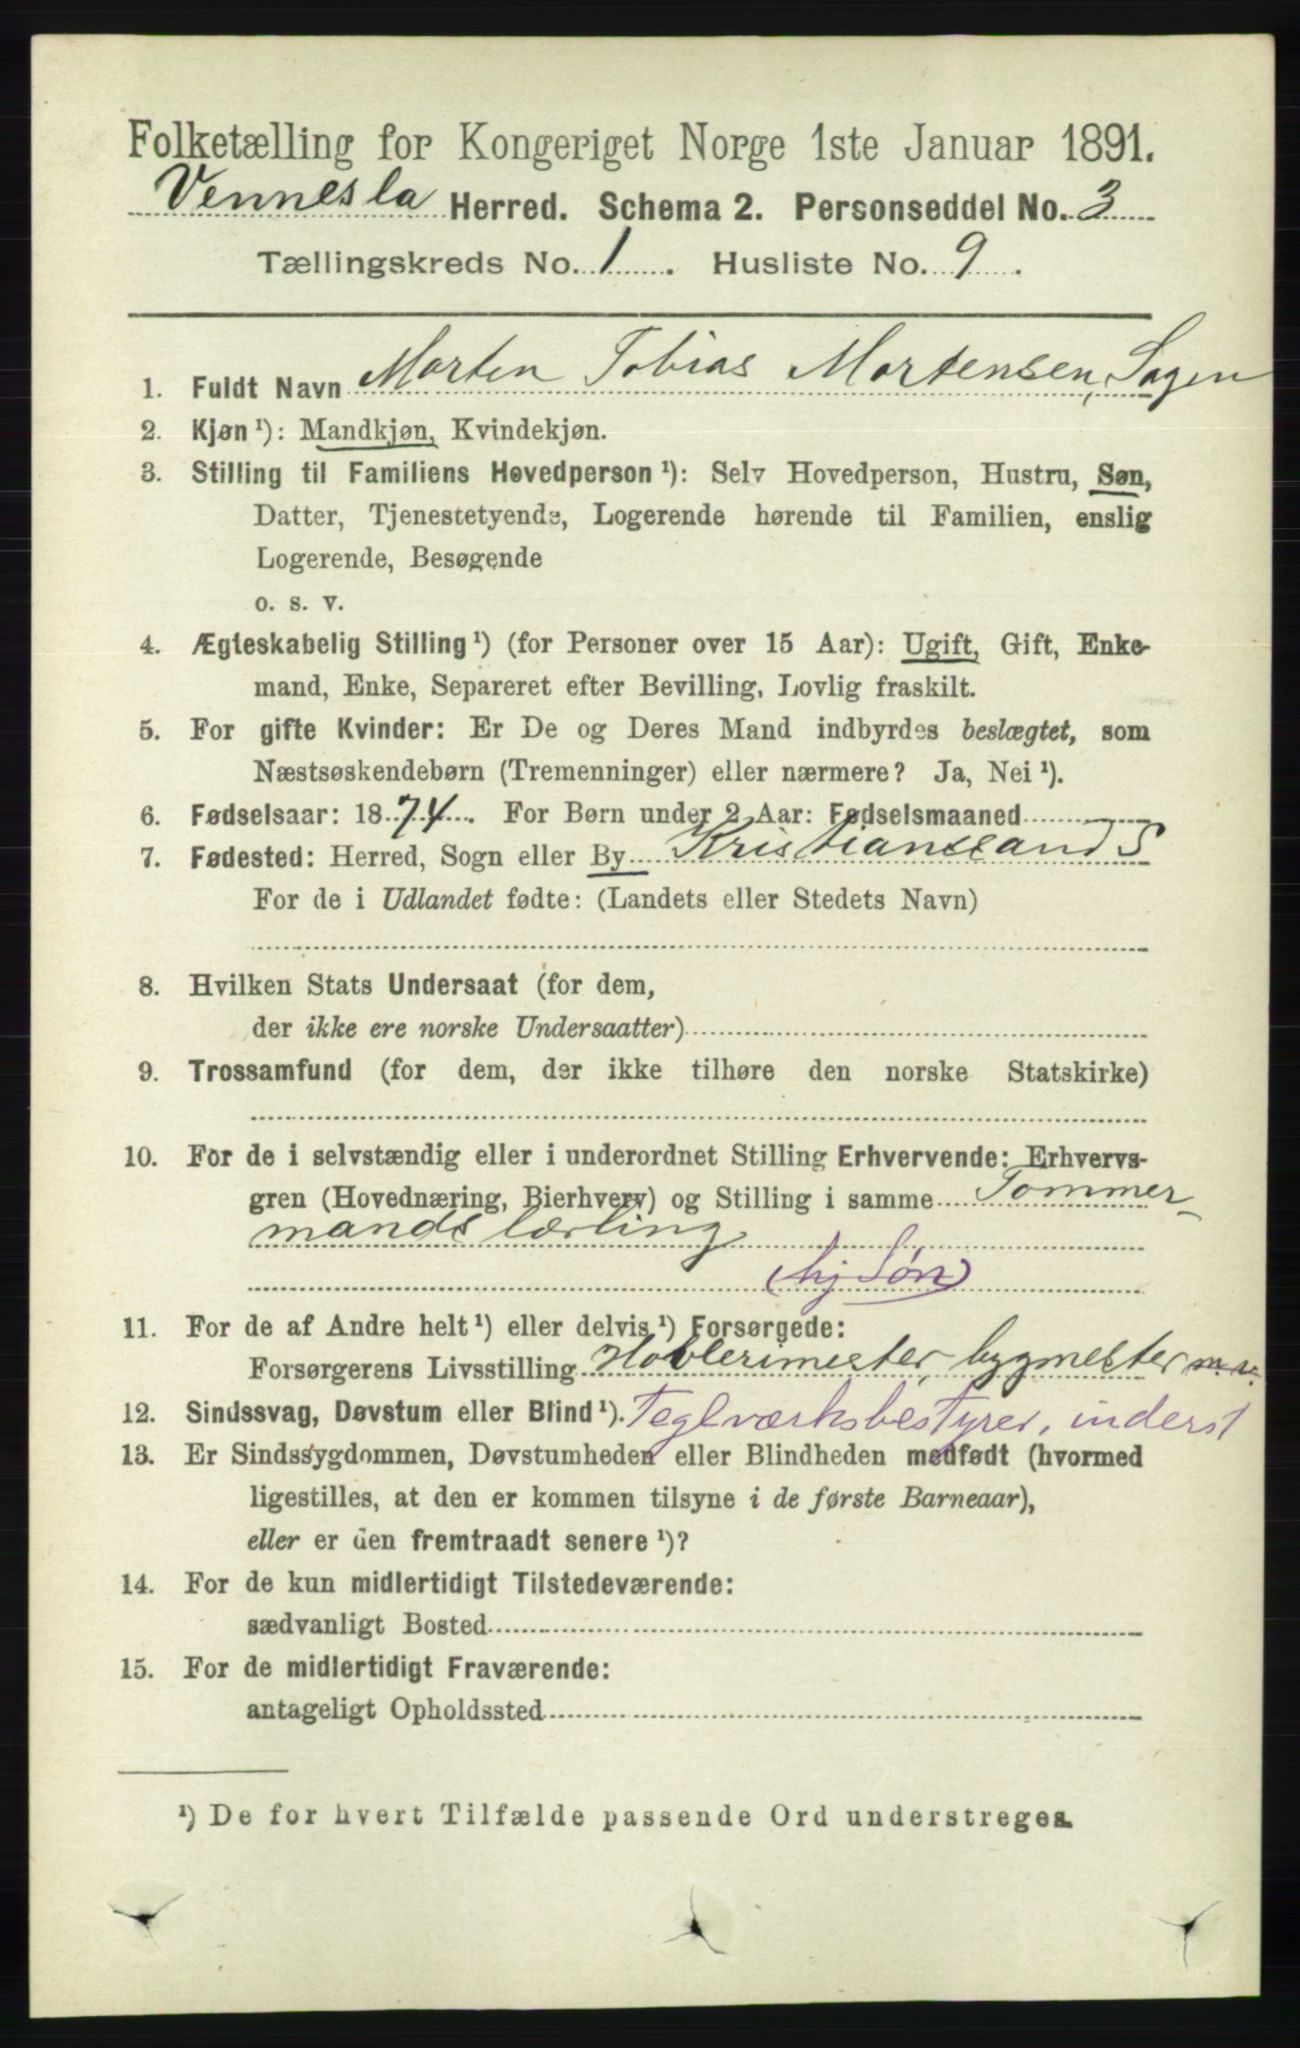 Folketælling for Kongeriget Norge 1ste Januar 1891.
Vennesla Herred. Schema 2. Personseddel No. 3
Tællingskreds No. 1 . Husliste No. 9 .
1. Fuldt Navn Morten Tobias Mortensen, Sagen
2. Kjøn ¹): Mandkjøn, Kvindekjøn.
3. Stilling til Familiens Hovedperson ¹): Selv Hovedperson, Hustru, Søn,
Datter, Tjenestetyende, Logerende hørende til Familien, enslig
Logerende, Besøgende
o. s. v.
4. Ægteskabelig Stilling ¹) (for Personer over 15 Aar): Ugift, Gift, Enke-
mand, Enke, Separeret efter Bevilling, Lovlig fraskilt.
5. For gifte Kvinder: Er De og Deres Mand indbyrdes beslægtet, som
Næstsøskendebørn (Tremenninger) eller nærmere? Ja, Nei ¹).
6. Fødselsaar: 1874. For Børn under 2 Aar: Fødselsmaaned
7. Fødested: Herred, Sogn eller By Kristianssand S
For de i Udlandet fødte: (Landets eller Stedets Navn)
8. Hvilken Stats Undersaat (for dem,
der ikke ere norske Undersaatter)
9. Trossamfund (for dem, der ikke tilhøre den norske Statskirke)
10. For de i selvstændig eller i underordnet Stilling Erhvervende: Erhvervs-
gren (Hovednæring, Bierhverv) og Stilling i samme Tommer-
mands lærling
(hj Søn)
11. For de af Andre helt ¹) eller delvis ¹) Forsørgede:
Forsørgerens Livsstilling Høvlerimester, bygmester m. v.
12. Sindssvag, Døvstum eller Blind ¹). Teglværksbestyrer, inderst
13. Er Sindssygdommen, Døvstumheden eller Blindheden medfødt (hvormed
ligestilles, at den er kommen tilsyne i de første Barneaar),
eller er den fremtraadt senere ¹)?
14. For de kun midlertidigt Tilstedeværende:
sædvanligt Bosted
15. For de midlertidigt Fraværende:
antageligt Opholdssted
¹) De for hvert Tilfælde passende Ord understreges.